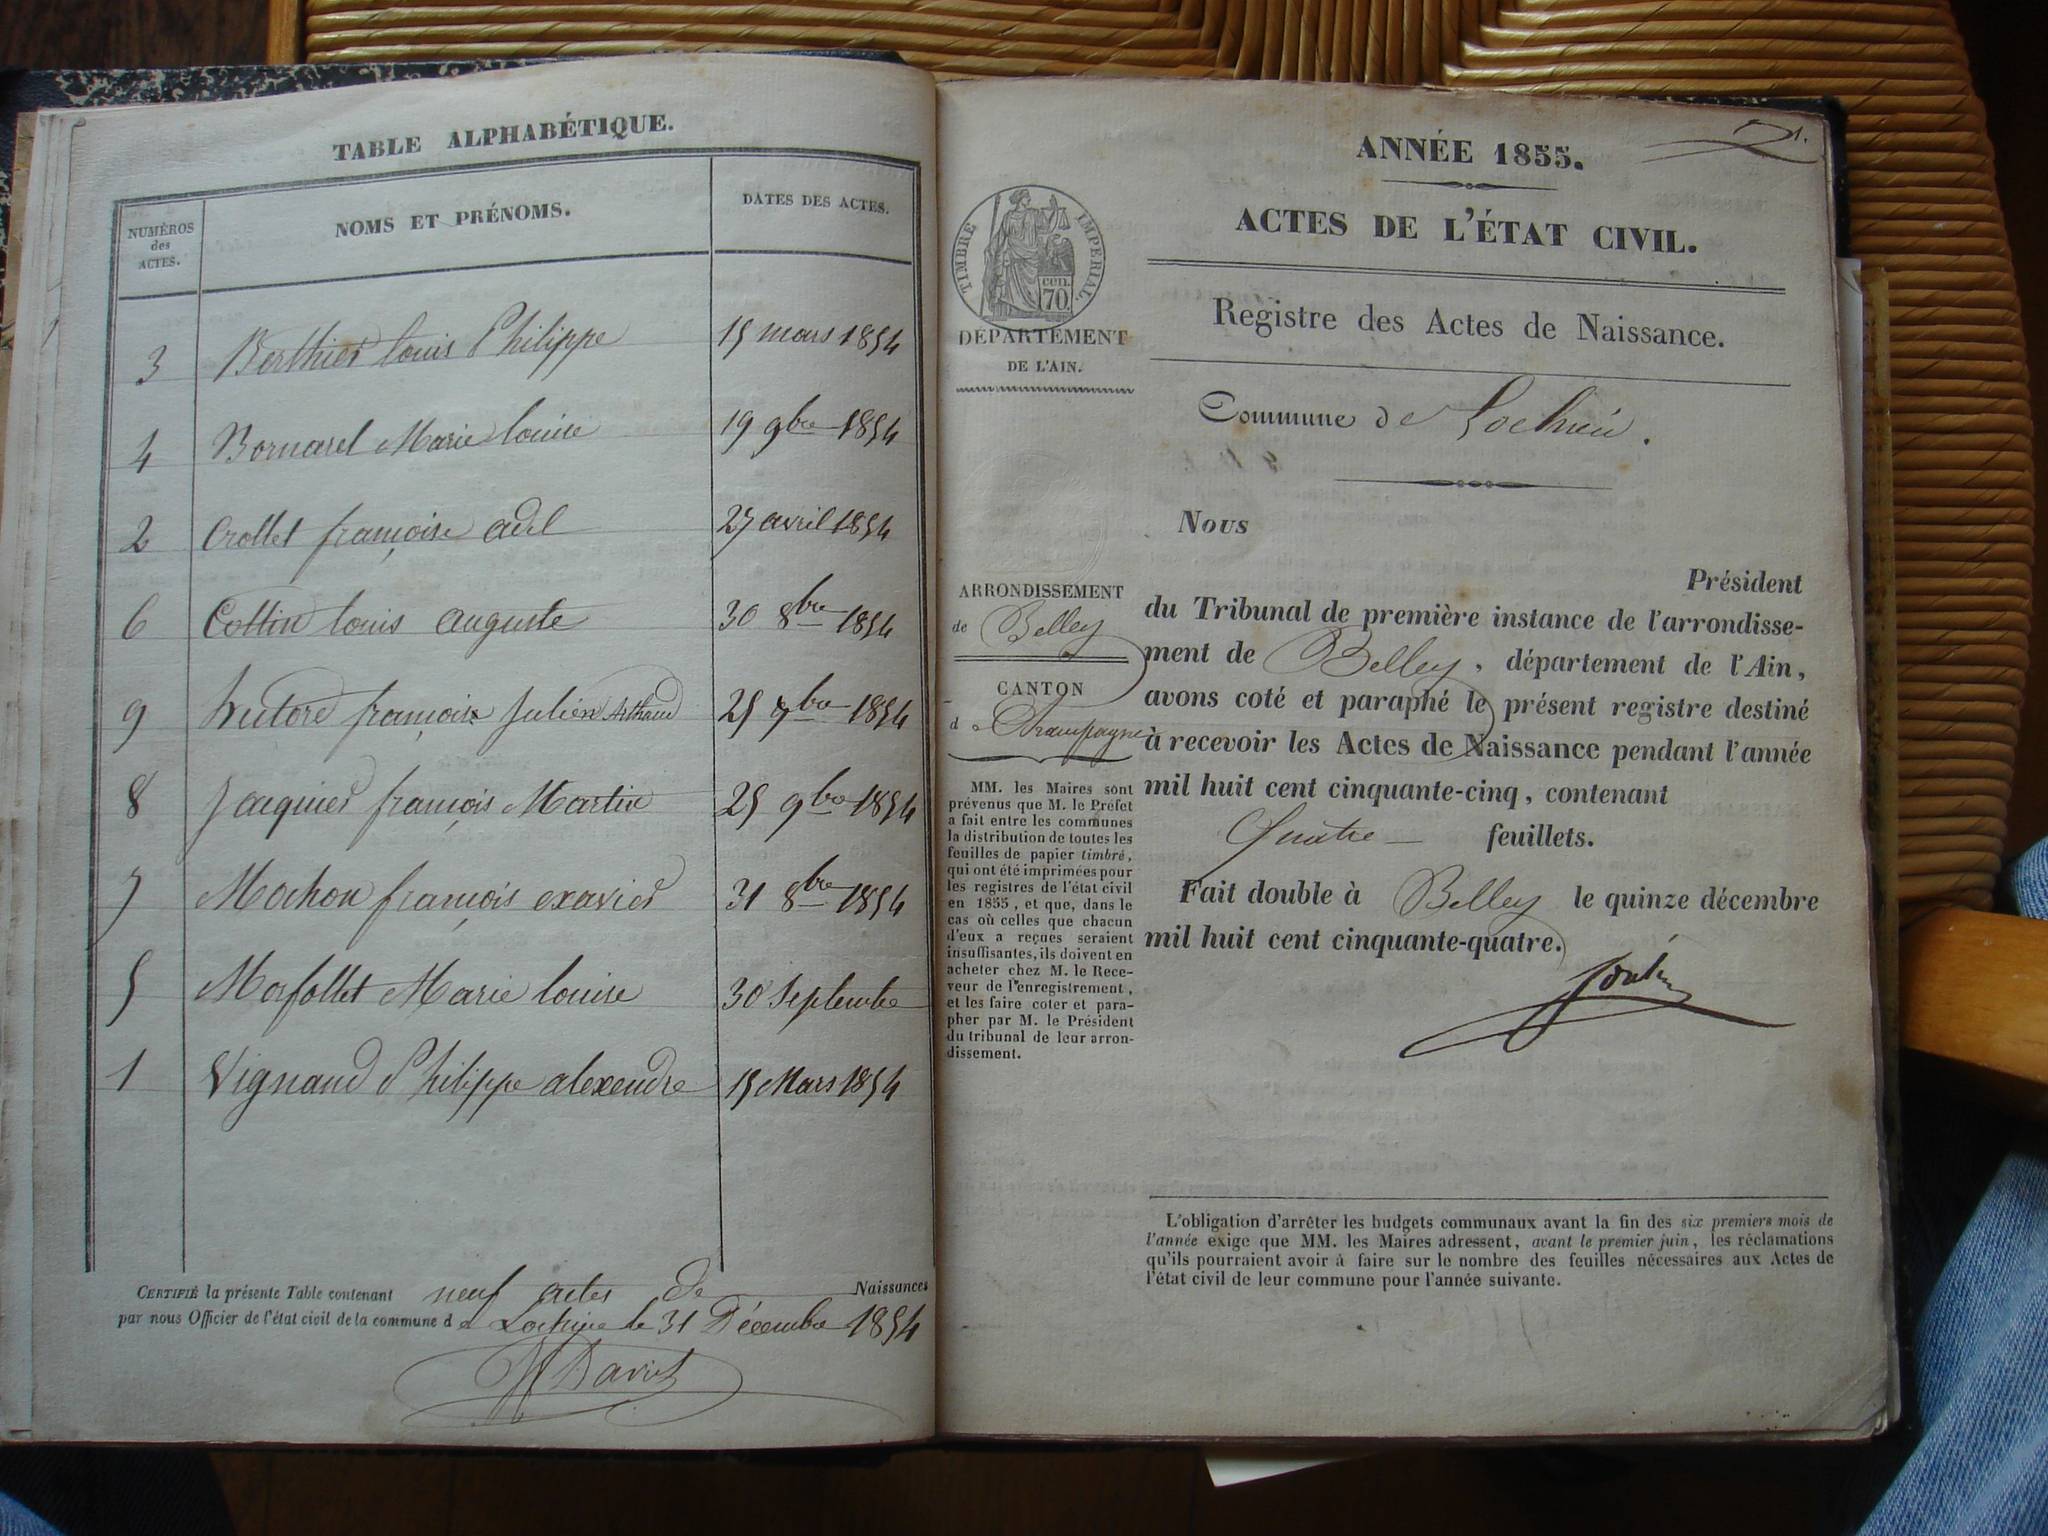 TABLE ALPHABÉTIQUE.
NUMÉROS des ACTES.
NOMS ET PRÉNOMS.
DATES DES ACTES.
3 Berthier louis Philippe 15 mars 1854
4 Bornarel Marie louise 19 9bre 1854
2 Crollet françoise adel 27 avril 1854
6 Cottin louis auguste 30 8bre 1854
9 françois Julien Arthaud 25 9bre 1854
8 Jacquier françois Martin 25 9bre 1854
7 Mochon françois exavier 31 8bre 1854
5 Morfollet Marie louise 30 Septembre
1 Vignand Philippe alexendre 15 Mars 1854
CERTIFIÉ la présente Table contenant neuf actes de Naissances
par nous Officier de l'état civil de la commune de Lochieu le 31 Décembre 1854
Davies
1.
ANNÉE 1855.
ACTES DE L'ÉTAT CIVIL.
TIMBRE IMPERIAL.
cen.
70
DÉPARTEMENT
DE L'AIN.
Registre des Actes de Naissance.
Commune de Lochieu.
Nous
Président
ARRONDISSEMENT
de Belley
CANTON
de Champagne
du Tribunal de première instance de l'arrondisse-
ment de Belley, département de l'Ain,
avons coté et paraphé le présent registre destiné
à recevoir les Actes de Naissance pendant l'année
mil huit cent cinquante-cinq, contenant
Quatre feuillets.
Fait double à Belley le quinze décembre
mil huit cent cinquante-quatre.
MM. les Maires sont
prévenus que M. le Préfet
a fait entre les communes
la distribution de toutes les
feuilles de papier timbré,
qui ont été imprimées pour
les registres de l'état civil
en 1855, et que, dans le
cas où celles que chacun
d'eux a reçues seraient
insuffisantes, ils doivent en
acheter chez M. le Rece-
veur de l'enregistrement,
et les faire coter et para-
pher par M. le Président
du tribunal de leur arron-
dissement.
L'obligation d'arrêter les budgets communaux avant la fin des six premiers mois de
l'année exige que MM. les Maires adressent, avant le premier juin, les réclamations
qu'ils pourraient avoir à faire sur le nombre des feuilles nécessaires aux Actes de
l'état civil de leur commune pour l'année suivante.